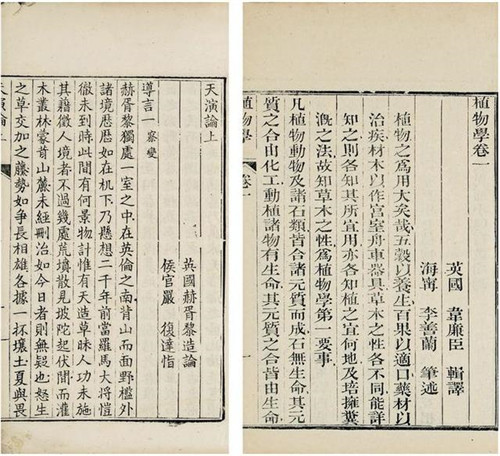 天演論上
英國赫胥黎造論
侯官嚴 復達恉
導言一 察變
赫胥黎獨處一室之中在英倫之南背山而面野檻外
諸境歷歷如在机下乃懸想二千年前當羅馬大將愷
徹未到時此間有何景物計惟有天造草昧人功未施
其藉徵人境者不過幾處荒墳散見坡陀起伏間而灌
木叢林蒙茸山麓未經刪治如今日者則無疑也怒生
之草交加之藤勢如爭長相雄各據一抔壤土夏與畏
天演論上
植物學卷一
英國 韋廉臣 輯譯
海寗 李善蘭 筆述
植物之為用大矣哉五穀以養生百果以適口藥材以
治疾材木以作宮室舟車器具草木之性各不同能詳
知之則各知其所宜用亦各知植之宜何地及培擁糞
溉之法故知草木之性為植物學第一要事
凡植物動物及諸石類皆合諸元質而成石無生命其元
質之合由化工動植諸物有生命其元質之合皆由生命
植物學 卷一